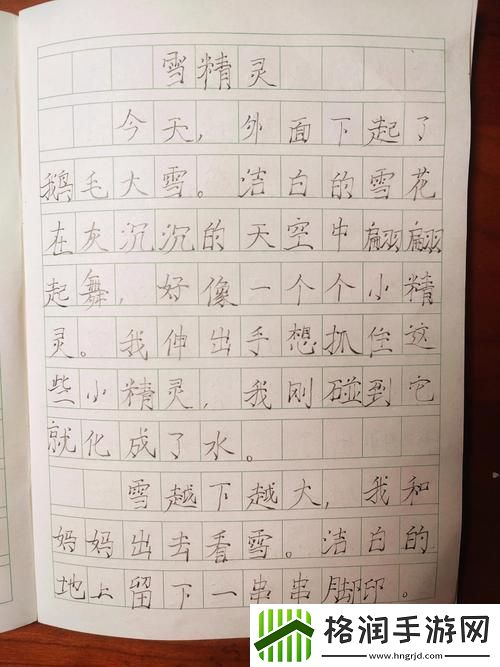 雪精灵
今天，外面下起了
鹅毛大雪。洁白的雪花
在灰沉沉的天空中翩翩
起舞，好像一个个小精
灵。我伸出手想抓住这
些小精灵，我刚碰到它
就化成了水。
雪越下越大，我和
妈妈出去看雪。洁白的
地上留下一串串脚印。
格润手游网
www.hngrjd.com